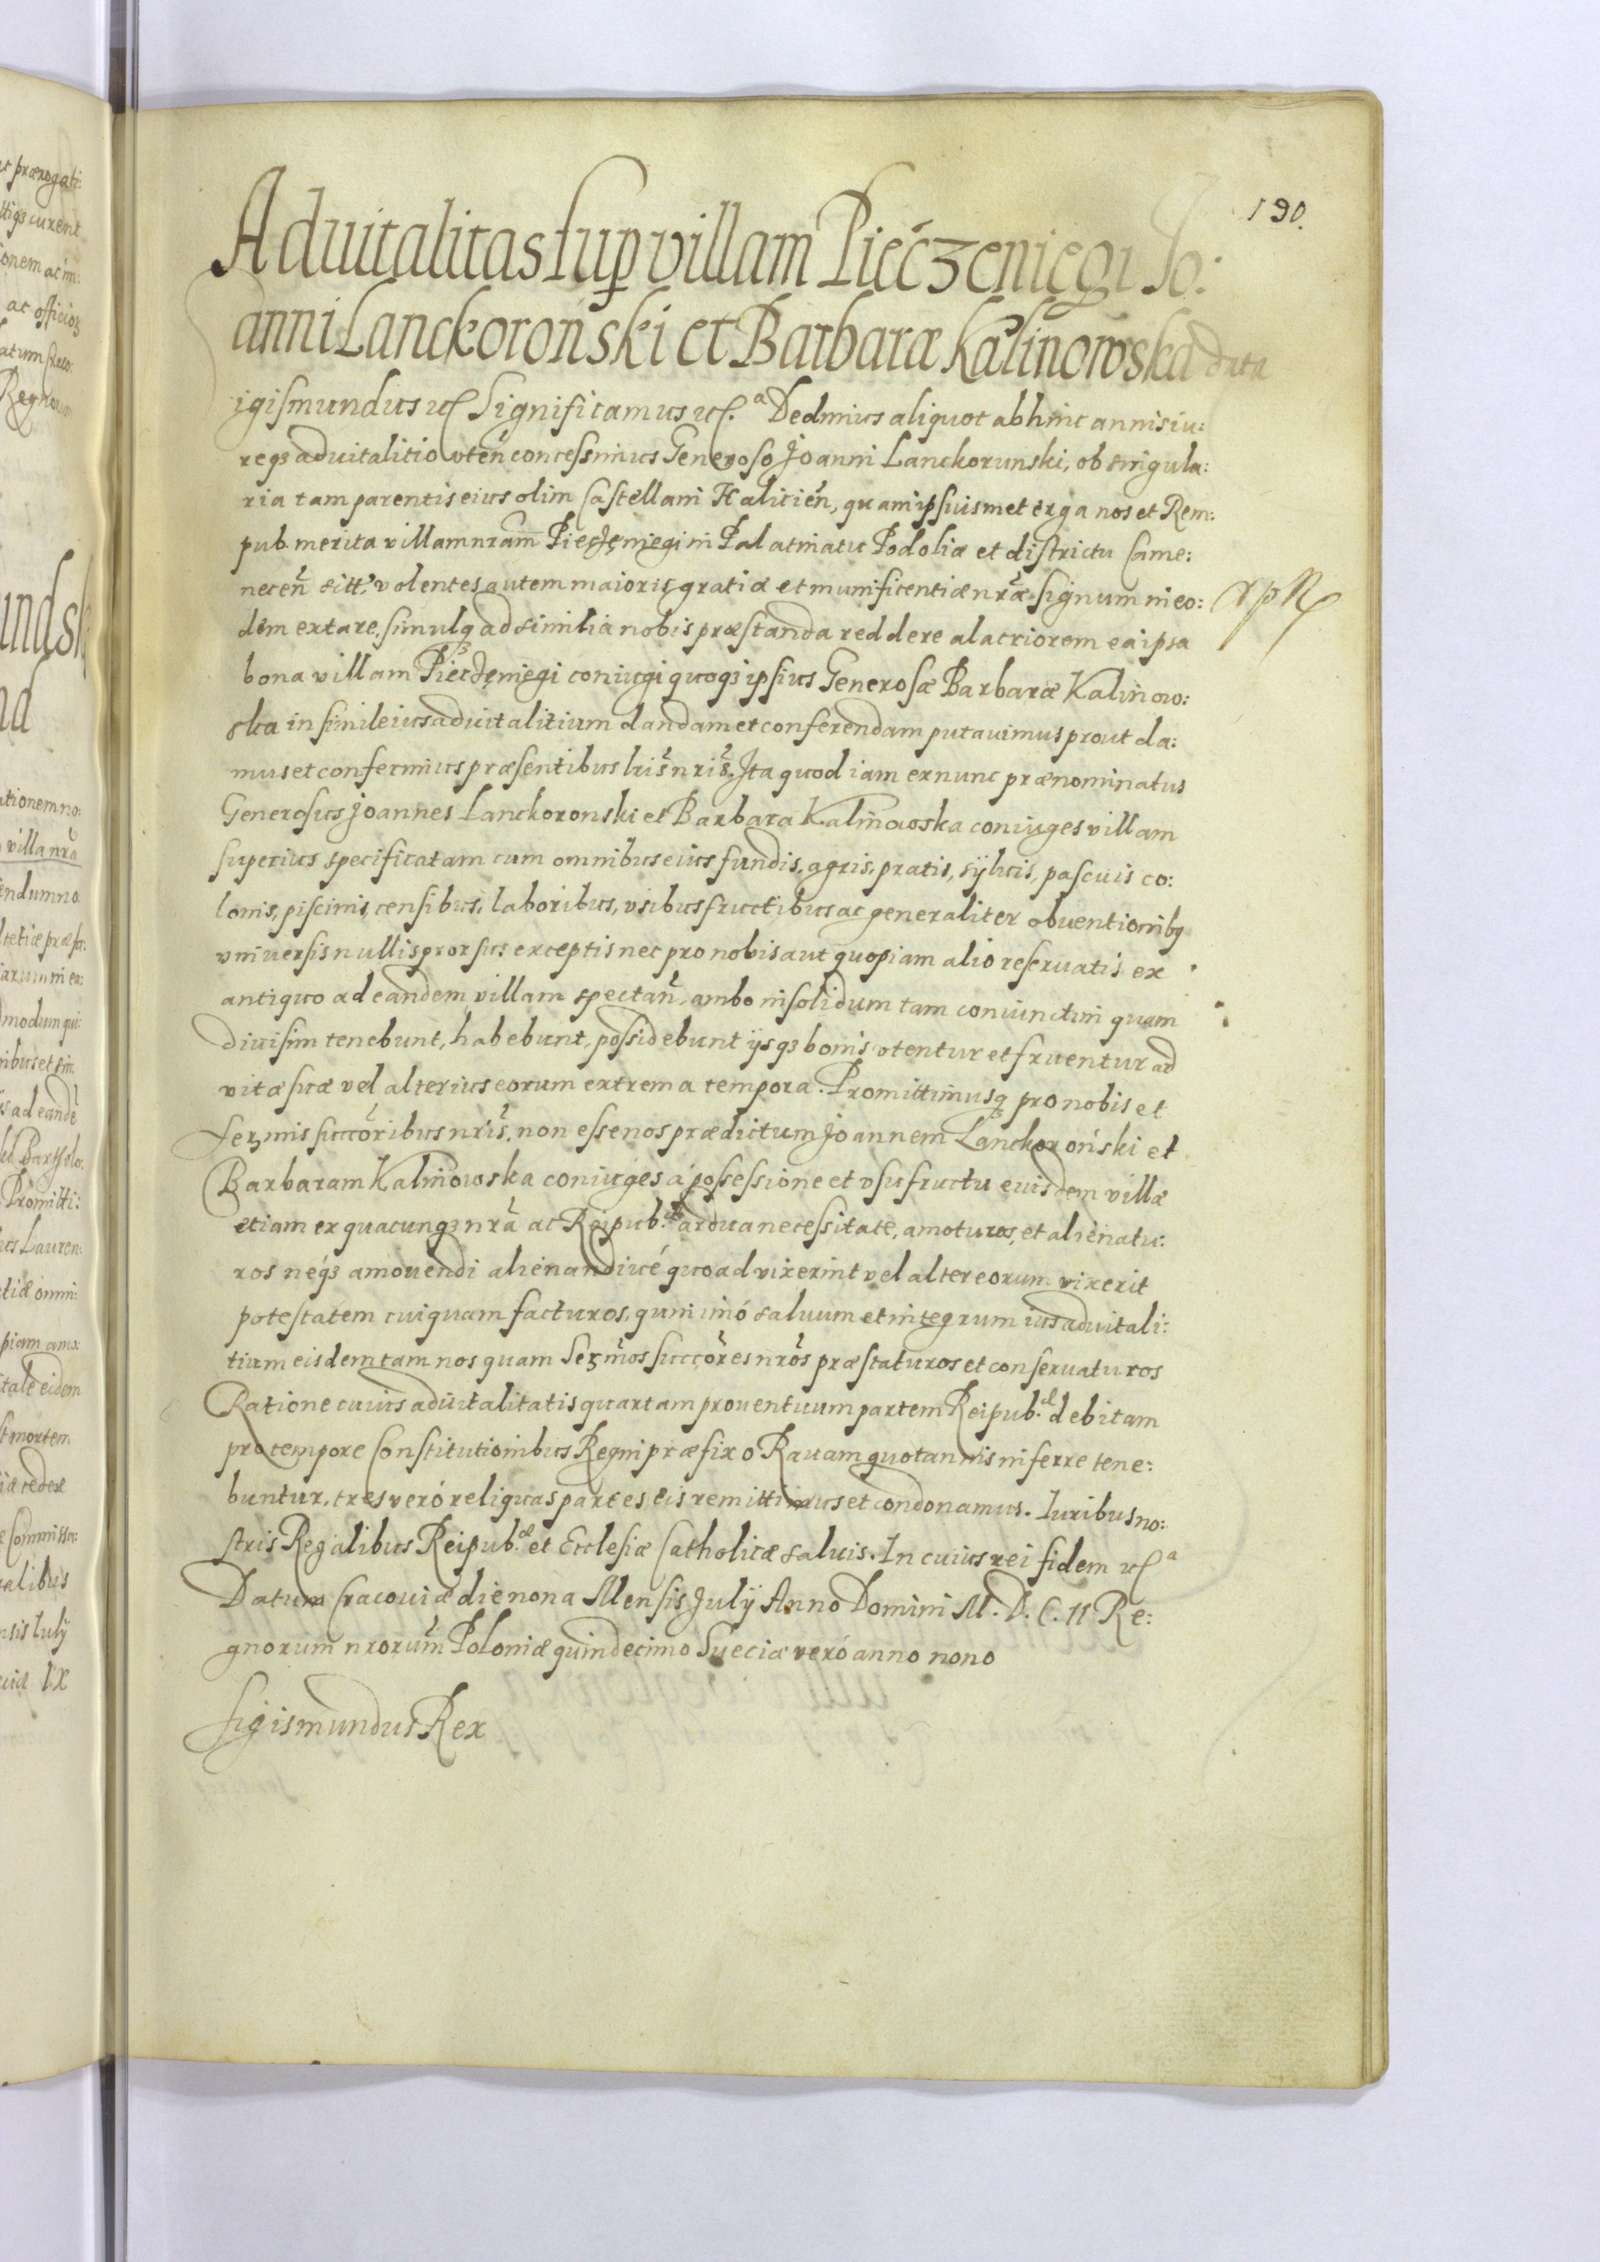 190.
Advitalitas sup villam Piećzeniegi Jo:
anni Lanckoroński et Barbaræ Kalinowska data
igismundus etc Significamus etc.ª Dedimus aliquot abhinc annis iu:
reqȝ advitalitio uteñ concessimus Generoso Joanni Lanckorunski, ob singula:
ria tam parentis eius olim Castellani Halicień, quam ipsiusmet erga nos et Rem:
pub. merita villam nram Pieczeniegi in Palatinatu Podoliæ et districtu Came:
neceñ sitt. volentes autem maioris gratiæ et munificentiæ nræ signum in eo:
dem extare, simulq ad similia nobis præstanda reddere alacriorem ea ipsa
bona villam Pieczeniegi coniugi quoqȝ ipsius Generosæ Barbaræ Kalinow:
ska in simile ius advitalitium dandam et conferendam putavimus prout da:
mus et conferimus præsentibus lris nris. Ita quod iam ex nunc prænominatus
Generosus Joannes Lanckoronski et Barbara Kalinowska coniuges villam
superius specificatam cum omnibus eius fundis, agris, pratis, sÿluis, pascuis co:
lonis, piscinis, censibus, laboribus, usibus fructibus ac generaliter obventionibq
universis nullis prorsus exceptis nec pro nobis aut quopiam alio reservatis ex
antiquo ad eandem villam spectañ. ambo insolidum tam coniunctim quam
divisim tenebunt, habebunt, possidebunt ijsqȝ bonis utentur et fruentur ad
vitæ suæ vel alterius eorum extrema tempora. Promittimusq pro nobis et
Sermis succoribus nris. non esse nos prædictum Joannem Lanckoroński et
Barbaram Kalinowska coniuges á possessione et usufructu eiusdem villæ
etiam ex quacunqȝ nra ac Reipub. ardua necessitate, amoturos, et alienatu:
ros néqȝ amovendi alienandive quoad vixerint vel alter eorum vixerit
potestatem cuiquam facturos, quin imó salvum et integrum ius advitali:
tium eisdem tam nos quam Sermos succores nros præstaturos et conservaturos
Ratione cuius advitalitatis quartam proventuum partem Reipub. debitam
pro tempore Constitutionibus Regni præfixo Ravam quotannis inferre tene:
buntur. tres veró reliquas partes eis remittimus et condonamus. Iuribus no:
stris Regalibus Reipub. et Ecclesiæ Catholicæ salvis. In cuius rei fidem etcª
Datum Cracoviæ die nona Mensis Julÿ Anno Domini M. D. C. II Re:
gnorum nrorum Poloniæ quindecimo Sueciæ veró anno nono
Sigismundus Rex